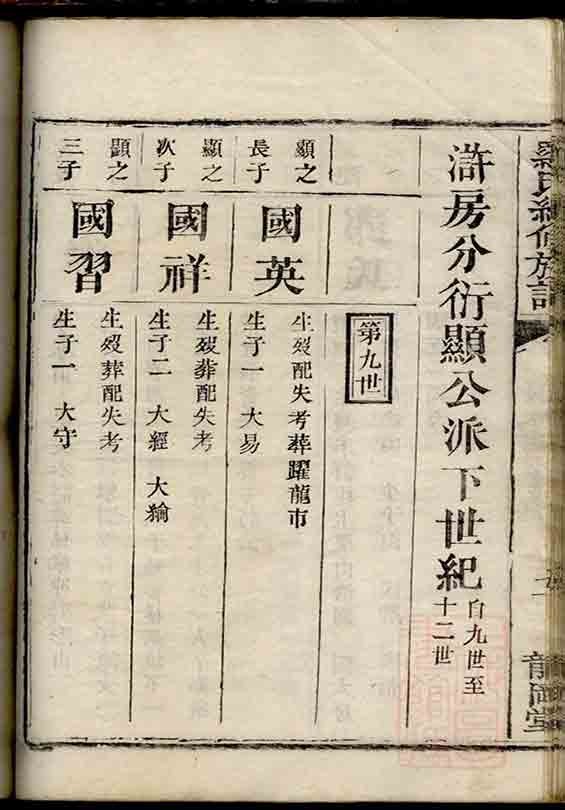 羅氏續修族譜
龍岡堂
滸房分衍顯公派下世紀
自九世至
十二世
第九世
顯之
長子
國英
生歿配失考葬躍龍市
生子一 大易
顯之
次子
國祥
生歿葬配失考
生子二 大經 大綸
顯之
三子
國習
生歿葬配失考
生子一 大守